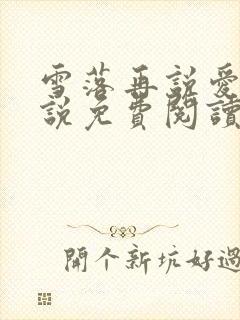 雪落再説愛
説免費閱讀
開个新坑好過